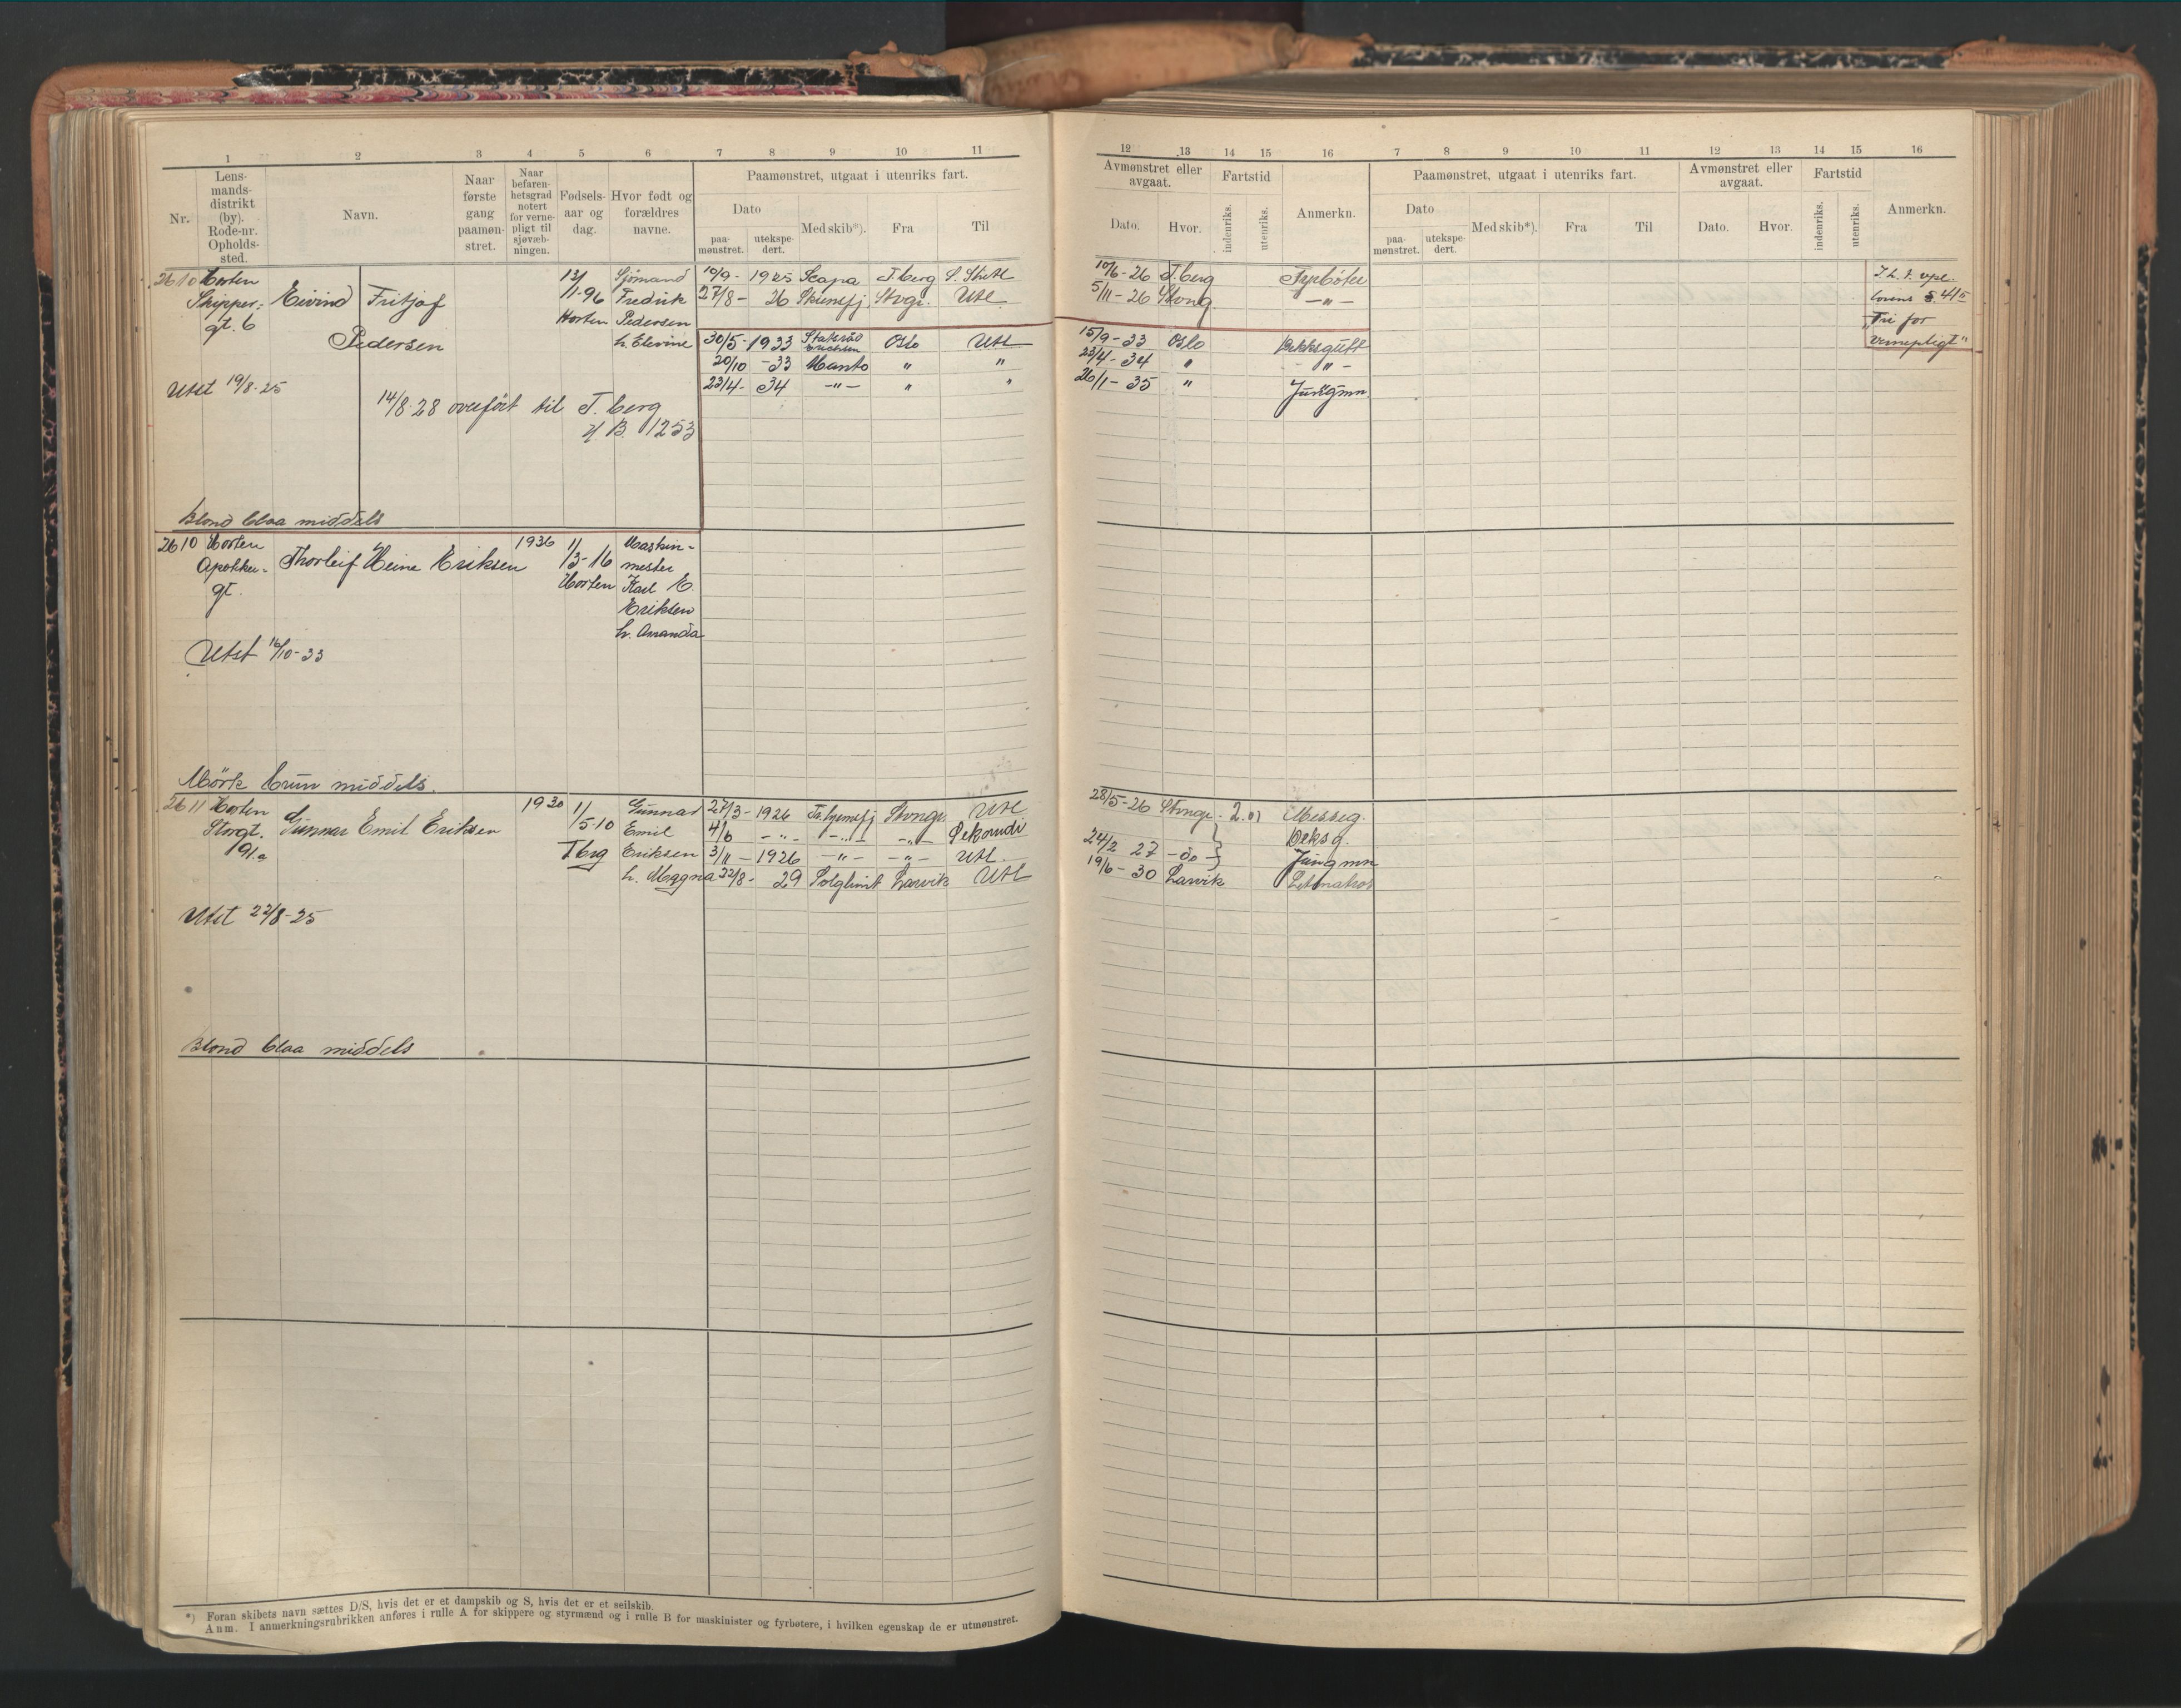 1 2 3 4 5 6 7 8 9 10 11
Nr. Lensmandsdistrikt (by). Rode-nr. Opholdssted. Navn. Naar første gang paamønstret. Naar befarenhetsgrad notert for vernepligt til sjøvæbningen. Fødselsaar og dag. Hvor født og forældres navne. Paamønstret, utgaat i utenriks fart.
Dato Med skib*). Fra Til
paamønstret. utekspedert.
12 13 14 15 16 7 8 9 10 11 12 13 14 15 16
Avmønstret eller avgaat. Fartstid Anmerkn. Paamønstret, utgaat i utenriks fart. Avmønstret eller avgaat. Fartstid Anmerkn.
Dato. Hvor. indenriks. utenriks. Dato Med skib*). Fra Til Dato. Hvor. indenriks. utenriks.
paamønstret. utekspedert.
2610 Horten 13/ Sjömand 10/9- 1925 Scapa T.berg 10/6-26 T.berg Fyrböter
Skipper= Eivind Fritjof 11-96 Fredrik 27/8- 26 Stvgr. Utl 5/11-26 Stvng -"-
gt. 6 Horten Pedersen "Fri for
Pedersen h. Elevine 30/5-1933 Statsråd Erichsen Oslo Utl 15/9-33 Oslo Dekksgutt vernepligt"
20/10 -33 Manto " " 23/4-34 " -"-
Utst 19/8-25 23/4- 34 -"- " " 26/1-35 " Jungmn
14/8-28 overfört til T.berg
B 1253
Blond blaa middels
2610 Horten Thorleif Heine Eriksen 1936 1/ Maskin-
Apotheker- 3-16 mester
gt. Horten Karl E.
Eriksen
h. Amanda
Utst 16/10-33
Mörk brun middels.
2611 Horten Gunnar Emil Eriksen 1930 1/ Gunnar 27/3-1926 Stvngr. Utl 28/5-26 Stvngr. Messeg.
Storgt. 5-10 Emil 4/6 -"- -"- -"- Deksg.
19/.a T.brg Eriksen 3/11-1926 -"- -"- Utl. 24/2 27 -do- Jungmn
h. Magna 22/8- 29 Solglimt Larvik Utl 19/6-30 Larvik Letmatros
Utst 22/8-25
Blond blaa middels
*) Foran skibets navn sættes D/S, hvis det er et dampskib og S, hvis det er et seilskib.
Anm. I anmerkningsrubrikken anføres i rulle A for skippere og styrmænd og i rulle B for maskinister og fyrbøtere, i hvilken egenskap de er utmønstret.